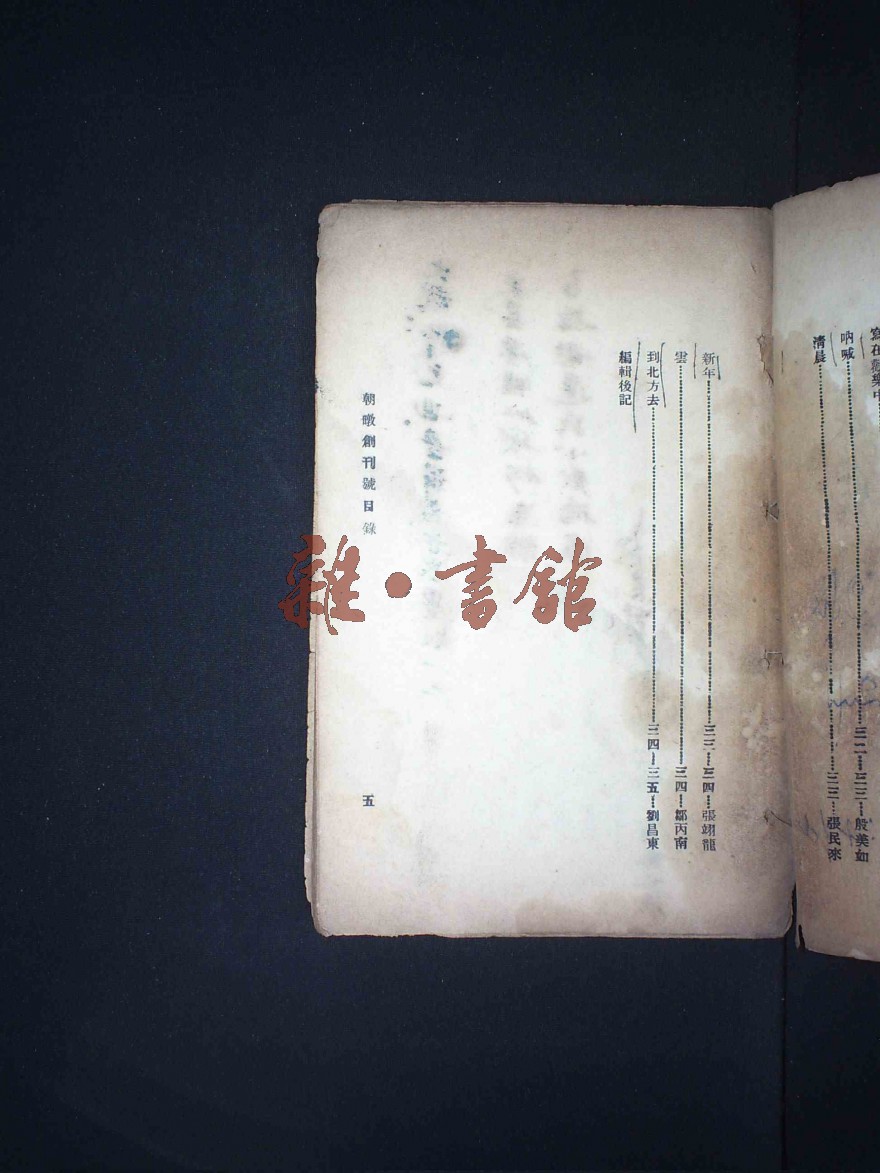 寫在歡樂中
吶喊……三二—三三…殷美如
清晨……三三…張民來
新年……三三—三四…張翊龍
雲……三四…鄒丙南
到北方去……三四—三五…劉昌東
編輯後記
朝暾創刊號目錄
五
雜·書館